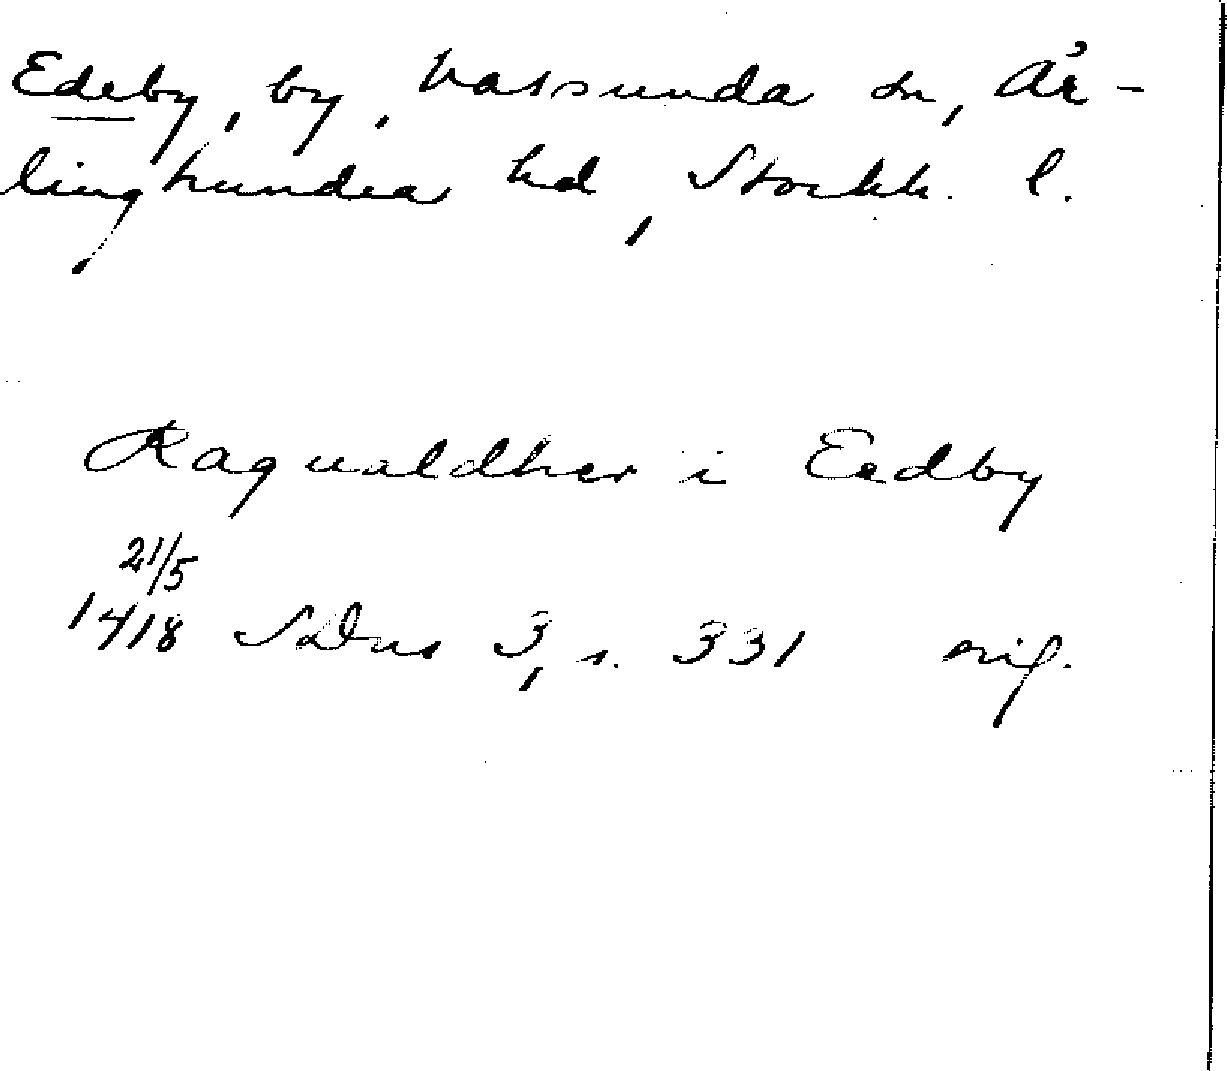 Edeby, by, Vassunda sn, Är-
linghundra hd, Stockh. l.
Ragualdher i Eedby
21/5
1418 SDns 3, s. 331 orig.